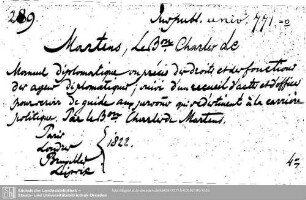 289 Jus publ. univ. 771-o
Martens, Le Bon Charles de
Manuel diplomatique ou précis des droits et des fonctions
des agens diplomatiques; suivi d'un recueil d'actes et d'offices
pour servir de guide aux personnes qui se destinent à la carrière
politique. Par le Bon Charles de Martens.
Paris
Londres
Bruxelles
Leipzic
1822.
4=